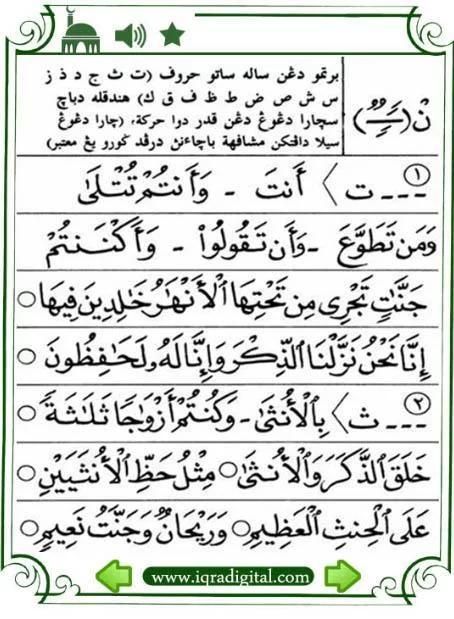 نْ (ـًـٍـٌ)
برتمو دڠن ساله ساتو حروف (ت ث ج د ذ ز
س ش ص ض ط ظ ف ق ك) هندقله دباچ
سچارا دڠوڠ دڠن قدر دوا حركة، (چارا دڠوڠ
سيلا داڤتكن مشافهة باچاءنڽ درڤد ݢورو يڠ معتبر)
١ --- ت〉 أَنتَ - وَأَنتُمْ تُتْلَىٰ
وَمَن تَطَوَّعَ - وَأَن تَقُولُوا۟ - وَأَكْنَنتُمْ
جَنَّـٰتٍ تَجْرِى مِن تَحْتِهَا ٱلْأَنْهَـٰرُ خَـٰلِدِينَ فِيهَا ○
إِنَّا نَحْنُ نَزَّلْنَا ٱلذِّكْرَ وَإِنَّا لَهُۥ لَحَـٰفِظُونَ ○
٢ --- ث〉 بِٱلْأُنثَىٰ - وَكُنتُمْ أَزْوَٰجًا ثَلَـٰثَةً
خَلَقَ ٱلذَّكَرَ وَٱلْأُنثَىٰ ○ مِثْلُ حَظِّ ٱلْأُنثَيَيْنِ ○
عَلَى ٱلْحِنثِ ٱلْعَظِيمِ ○ وَرَيْحَانٌ وَجَنَّتُ نَعِيمٍ ○
www.iqradigital.com